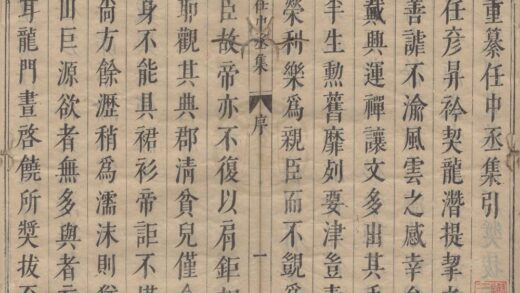 重纂任中丞集引
任彦昇衿契龍潛提挈
善謔不渝風雲之感幸
戴興運禪讓文多出其手
半生勲舊靡列要津豈
榮利樂爲親臣而不覬
任中丞集 序 一
臣故帝亦不復以肩鉅
耶觀其典郡清貧兒僅
身不能具裙衫帝詎不
尚方餘瀝稍爲濡沫則
山巨源欲者無多與者
耳龍門晝啓饒所奬拔